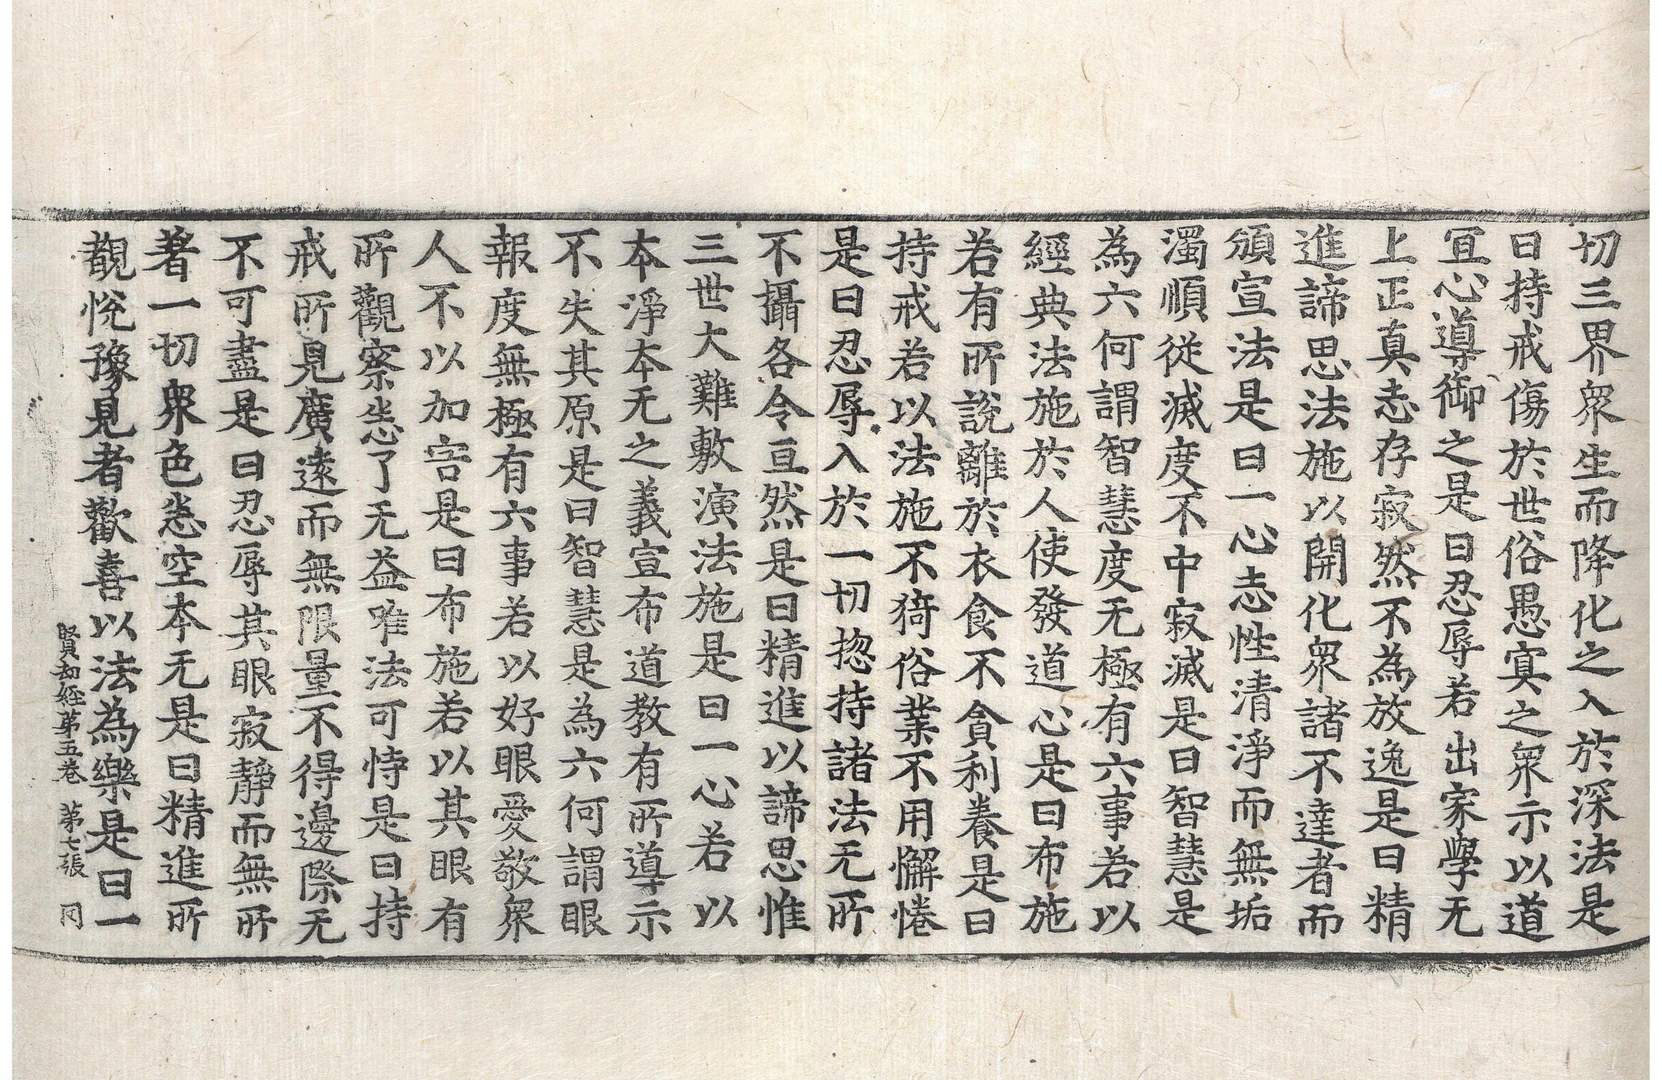 切三界衆生而降化之入於深法是
曰持戒傷於世俗愚冥之衆示以道
冝心導御之是曰忍辱若出家學无
上正真志存寂然不為放逸是曰精
進諦思法施以開化衆諸不達者而
頒宣法是曰一心志性清淨而無垢
濁順從滅度不中寂滅是曰智慧是
為六何謂智慧度无極有六事若以
經典法施於人使發道心是曰布施
若有所說離於衣食不貪利養是曰
持戒若以法施不猗俗業不用懈惓
是曰忍辱入於一切揔持諸法无所
不攝各令亘然是曰精進以諦思惟
三世大難敷演法施是曰一心若以
本淨本无之義宣布道教有所導示
不失其原是曰智慧是為六何謂眼
報度無極有六事若以好眼愛敬衆
人不以加害是曰布施若以其眼有
所觀察悉了无益唯法可恃是曰持
戒所見廣遠而無限量不得邊際无
不可盡是曰忍辱其眼寂靜而無所
著一切衆色悉空本无是曰精進所
觀悅豫見者歡喜以法為樂是曰一
賢劫经第五卷 第七張 冈